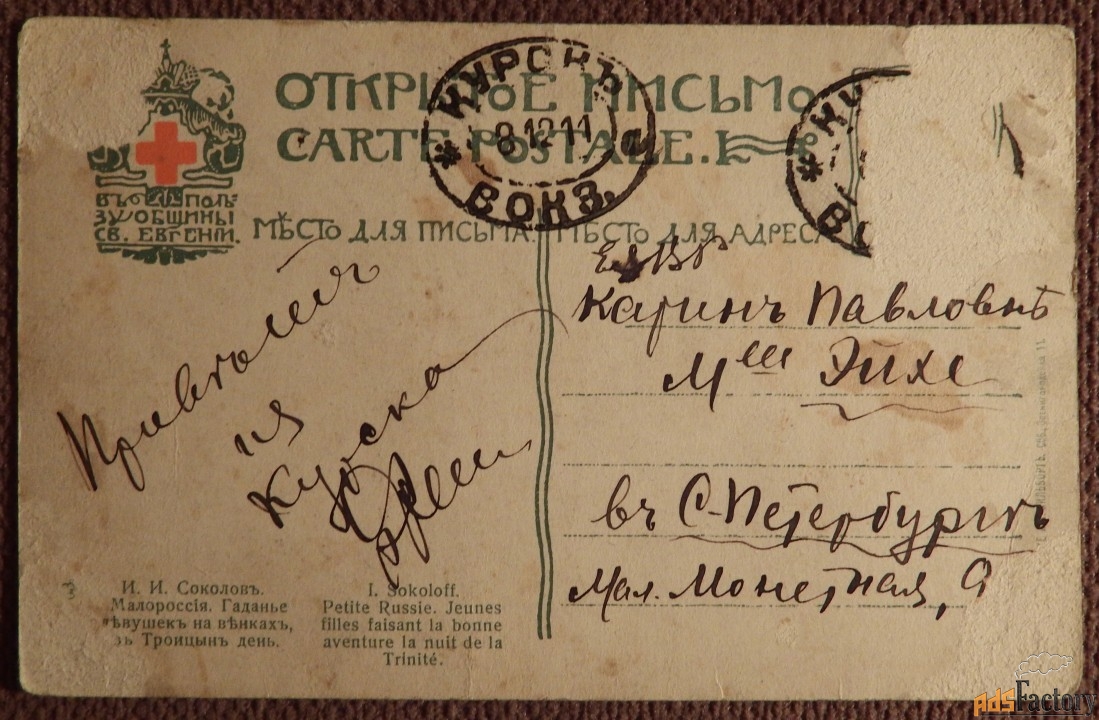 ОТКРЫТОЕ ПИСЬМО
CARTE POSTALE.
ВЪ ПОЛЬ
ЗУ ОБЩИНЫ
СВ. ЕВГЕНІИ.
КУРСКЪ
8.12.11
а
ВОКЗ.
МѢСТО ДЛЯ ПИСЬМА.
МѢСТО ДЛЯ АДРЕСА
Привѣтъ
из
Курска
Каринъ Павловнѣ
Мше Эйхе
въ С-Петербургъ
Мал. Монетная, 9
И. И. Соколовъ.
Малороссія. Гаданье
ѣвушекъ на вѣнкахъ,
въ Троицынъ день.
I. Sokoloff.
Petite Russie. Jeunes
filles faisant la bonne
aventure la nuit de la
Trinité.
AdsFactory